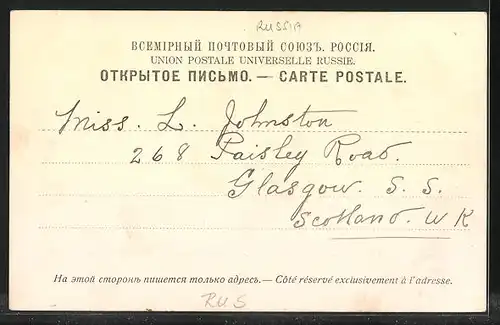 RUSSIA
ВСЕМІРНЫЙ ПОЧТОВЫЙ СОЮЗЪ. РОССІЯ.
UNION POSTALE UNIVERSELLE RUSSIE.
ОТКРЫТОЕ ПИСЬМО. — CARTE POSTALE.
Miss. L. Johnston
268 Paisley Road.
Glasgow. S. S.
Scotland. W K
На этой сторонѣ пишется только адресъ. — Côté réservé exclusivement à l'adresse.
RUS